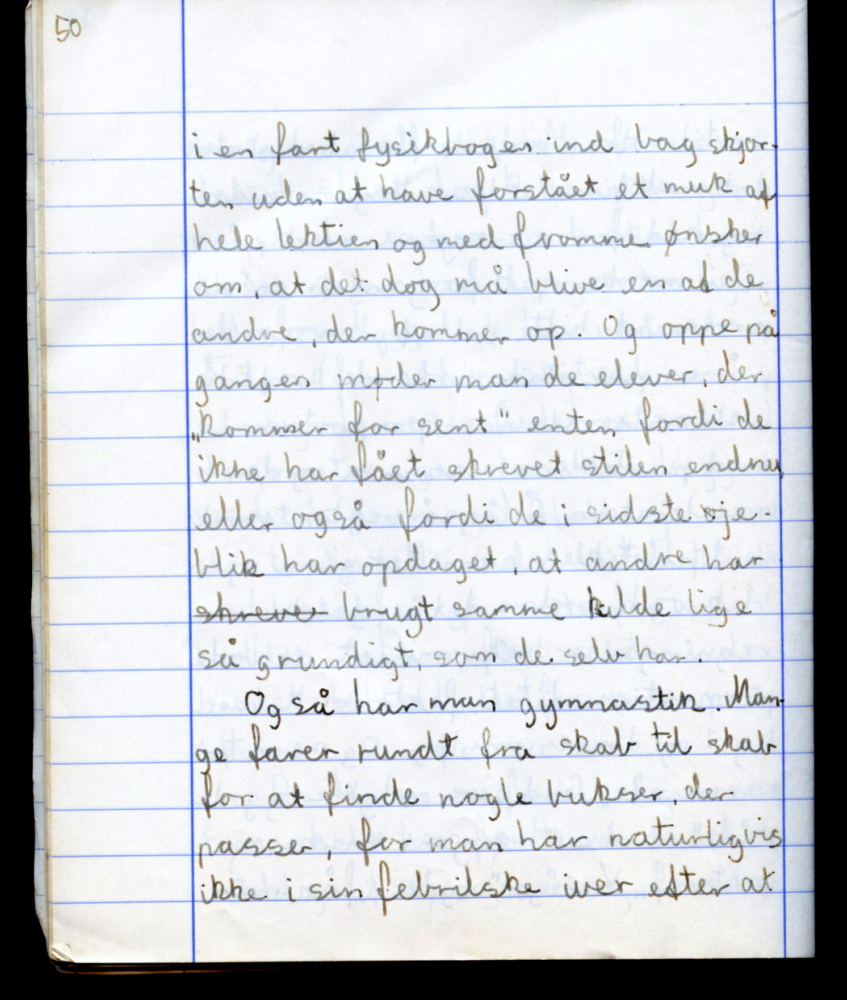 50
i en fart fysikbogen ind bag skjor-
ten uden at have forstået et muk af
hele lektien og med fromme ønsker
om, at det dog må blive en af de
andre, der kommer op. Og oppe på
gangen møder man de elever, der
„kommer for sent" enten fordi de
ikke har fået skrevet stilen endnu,
eller også fordi de i sidste øje-
blik har opdaget, at andre har
skrevet brugt samme kilde lige
så grundigt, som de selv har.
Og så har man gymnastik. Man-
ge farer rundt fra skab til skab
for at finde nogle bukser, der
passer, for man har naturligvis
ikke i sin febrilske iver efter at